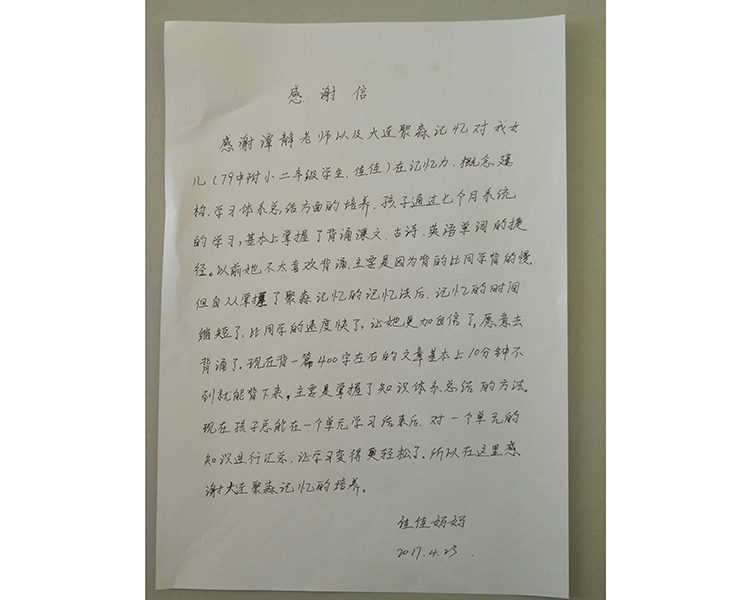 感谢信
感谢谭静老师以及大连聚森记忆对我女
儿(79中附小二年级学生、佳佳)在记忆力、概念建
构、学习体系总结方面的培养。孩子通过七个月系统
的学习,基本上掌握了背诵课文、古诗、英语单词的捷
径。以前她不太喜欢背诵,主要是因为背的比同学背的慢,
但自从掌握了聚森记忆的记忆法后,记忆的时间
缩短了,比同学的速度快了,让她更加自信了,愿意去
背诵了。现在背一篇400字左右的文章基本上10分钟不
到就能背下来。主要是掌握了知识体系总结的方法。
现在孩子总能在一个单元学习结束后,对一个单元的
知识进行汇总,让学习变得更轻松了。所以在这里感
谢大连聚森记忆的培养。
佳佳妈妈
2017.4.23.